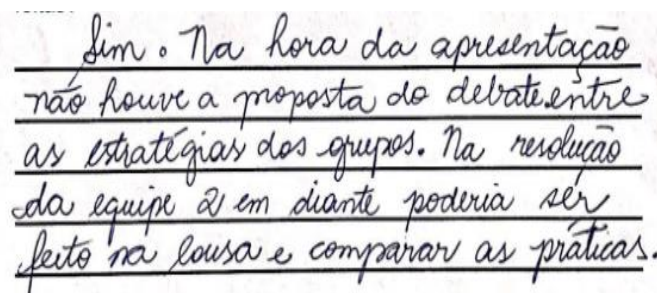 Sim. Na hora da apresentação
não houve a proposta do debate entre
as estratégias dos grupos. Na resolução
da equipe 2 em diante poderia ser
feito na lousa e comparar as práticas.